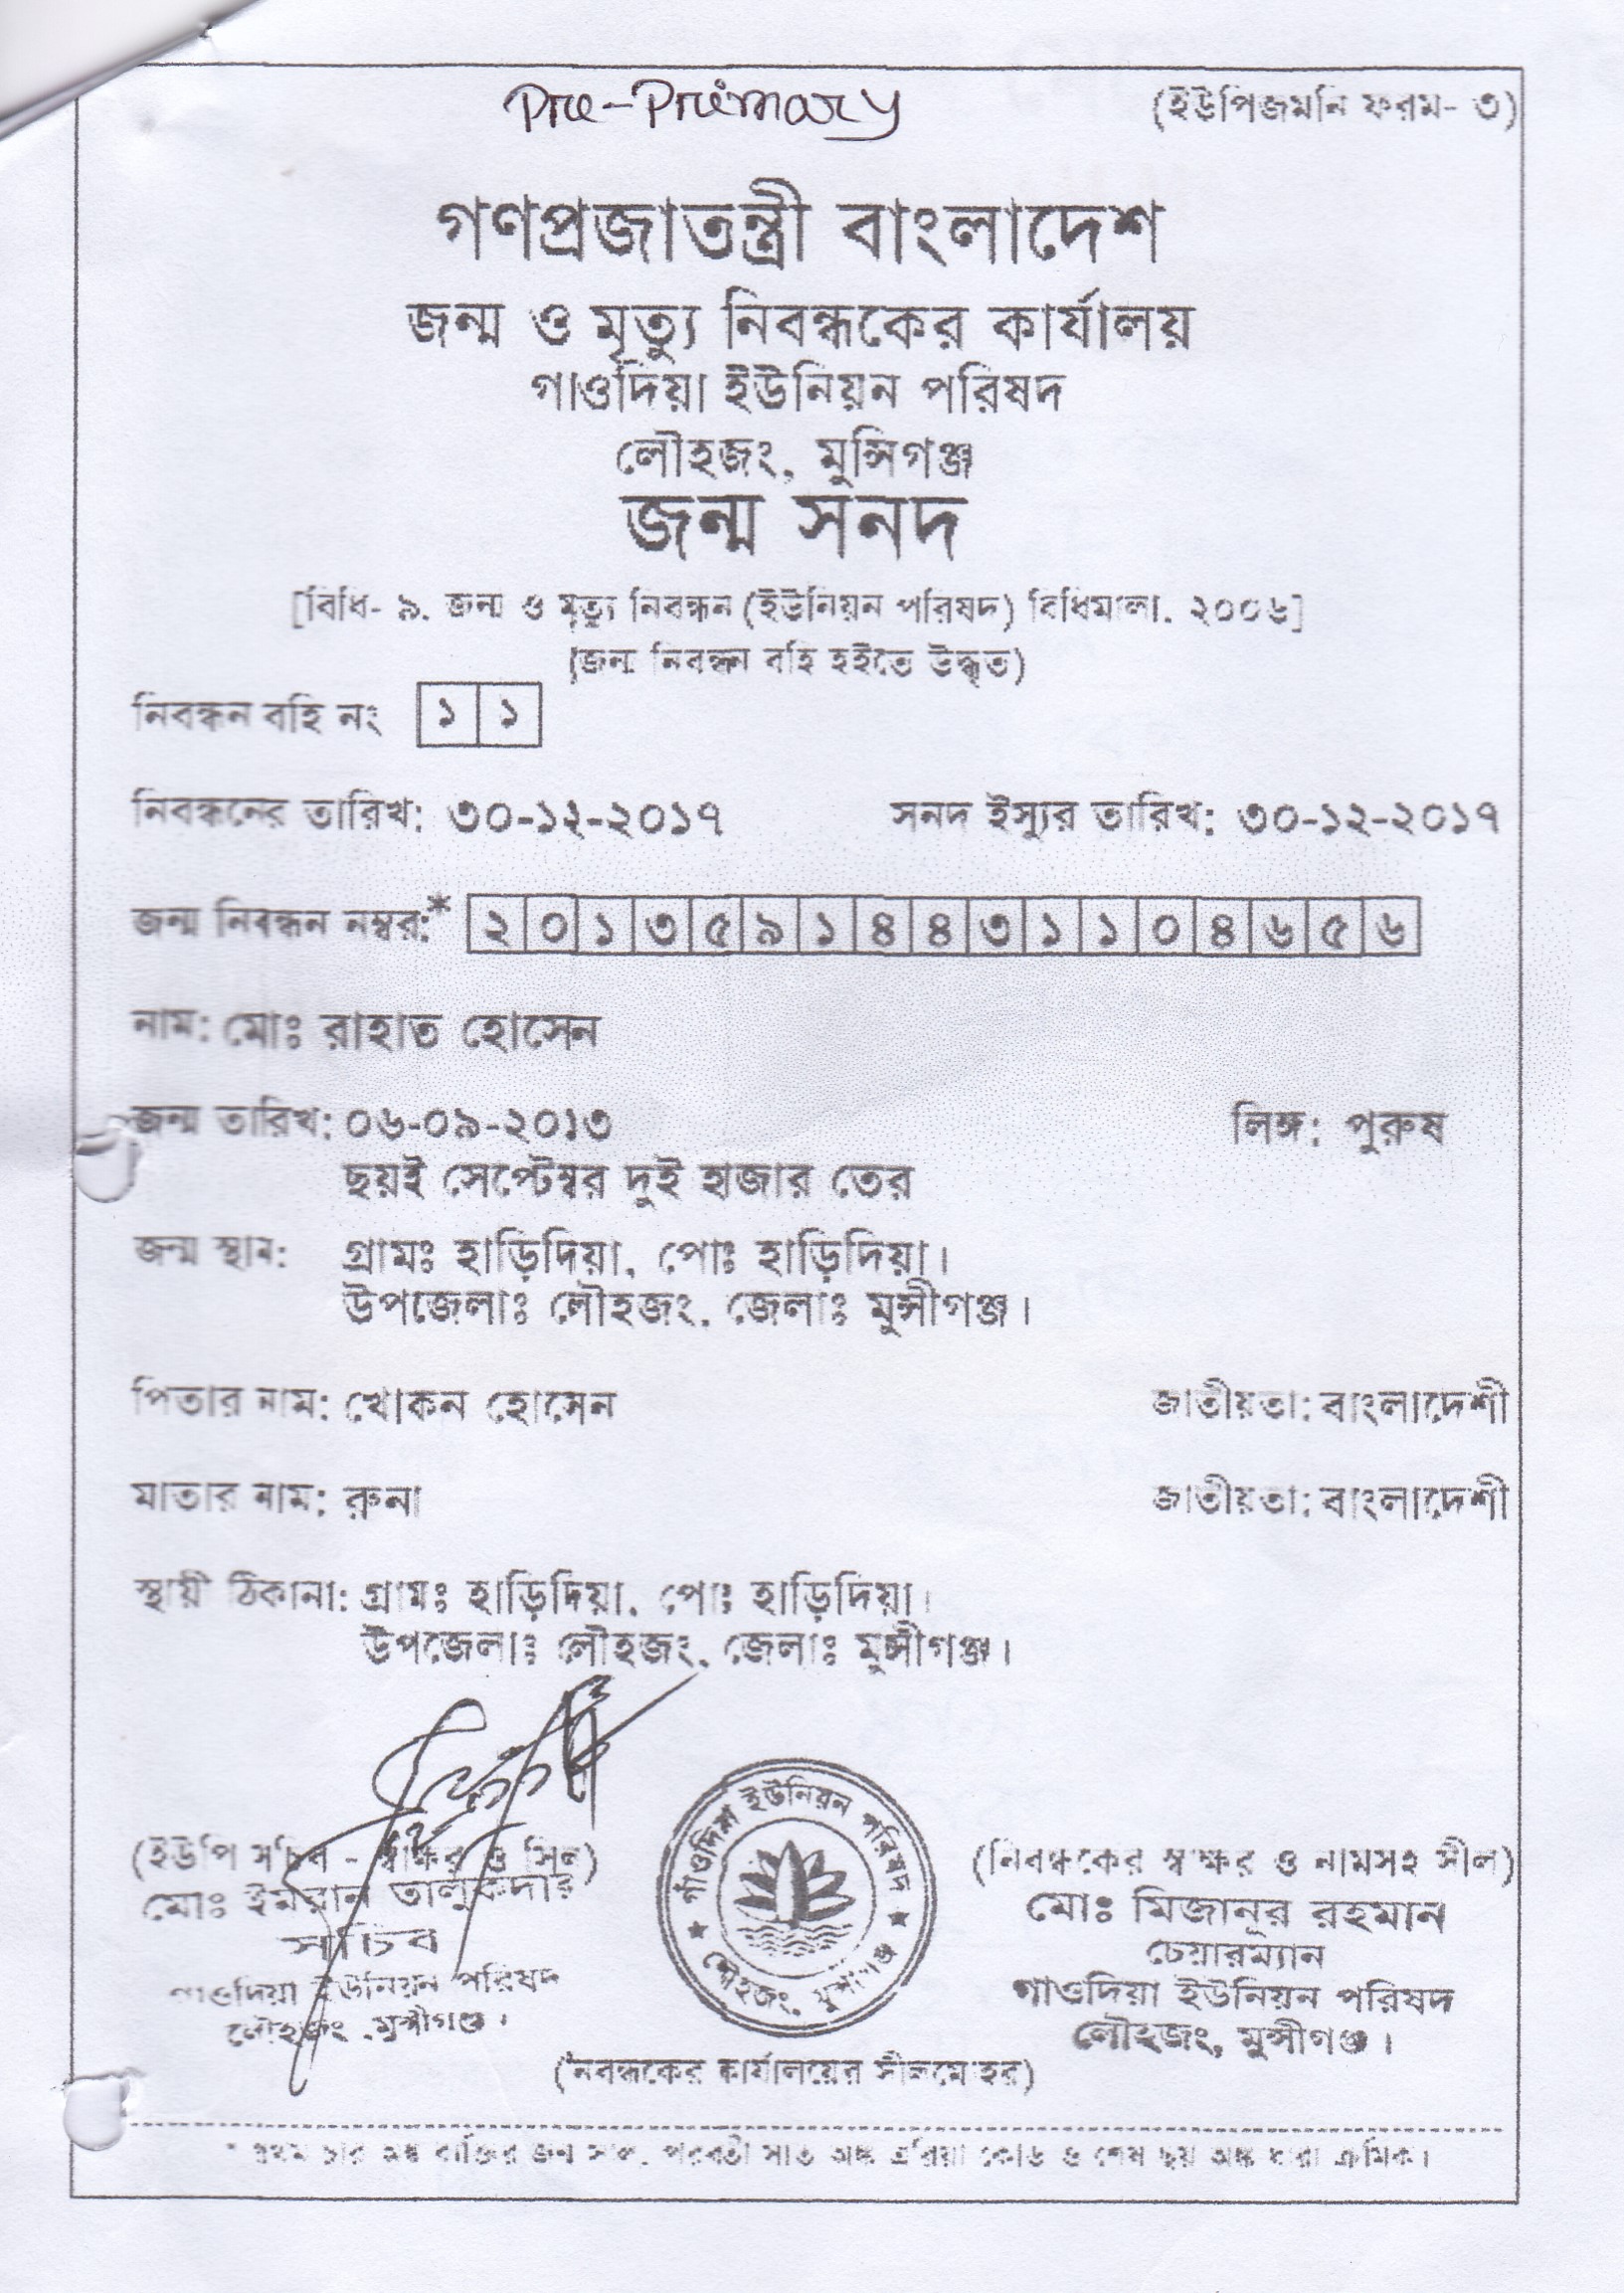 Pre-Primary
(ইউপিজমনি ফরম- ৩)
গণপ্রজাতন্ত্রী বাংলাদেশ
জন্ম ও মৃত্যু নিবন্ধকের কার্যালয়
গাওদিয়া ইউনিয়ন পরিষদ
লৌহজং, মুন্সিগঞ্জ
জন্ম সনদ
[বিধি- ৯, জন্ম ও মৃত্যু নিবন্ধন (ইউনিয়ন পরিষদ) বিধিমালা, ২০০৬]
(জন্ম নিবন্ধন বহি হইতে উদ্ধৃত)
নিবন্ধন বহি নং ১১
নিবন্ধনের তারিখ: ৩০-১২-২০১৭ সনদ ইস্যুর তারিখ: ৩০-১২-২০১৭
জন্ম নিবন্ধন নম্বর:* ২০১৩৫৯১৪৪৩১১০৪৬৫৬
নাম: মোঃ রাহাত হোসেন
জন্ম তারিখ: ০৬-০৯-২০১৩ লিঙ্গ: পুরুষ
ছয়ই সেপ্টেম্বর দুই হাজার তের
জন্ম স্থান: গ্রামঃ হাড়িদিয়া, পোঃ হাড়িদিয়া।
উপজেলাঃ লৌহজং, জেলাঃ মুন্সীগঞ্জ।
পিতার নাম: খোকন হোসেন জাতীয়তা: বাংলাদেশী
মাতার নাম: রুনা জাতীয়তা: বাংলাদেশী
স্থায়ী ঠিকানা: গ্রামঃ হাড়িদিয়া, পোঃ হাড়িদিয়া।
উপজেলাঃ লৌহজং, জেলাঃ মুন্সীগঞ্জ।
(ইউপি সচিব - স্বাক্ষর ও সিল)
মোঃ ইমরান তালুকদার
সচিব
গাওদিয়া ইউনিয়ন পরিষদ
লৌহজং, মুন্সীগঞ্জ।
গাঁওদিয়া ইউনিয়ন পরিষদ
লৌহজং, মুন্সীগঞ্জ
(নিবন্ধকের স্বাক্ষর ও নামসহ সীল)
মোঃ মিজানুর রহমান
চেয়ারম্যান
গাওদিয়া ইউনিয়ন পরিষদ
লৌহজং, মুন্সীগঞ্জ।
(নিবন্ধকের কার্যালয়ের সীলমোহর)
* প্রথম চার অঙ্ক ব্যক্তির জন্ম সাল, পরবর্তী সাত অঙ্ক এরিয়া কোড ও শেষ ছয় অঙ্ক ধারা ক্রমিক।